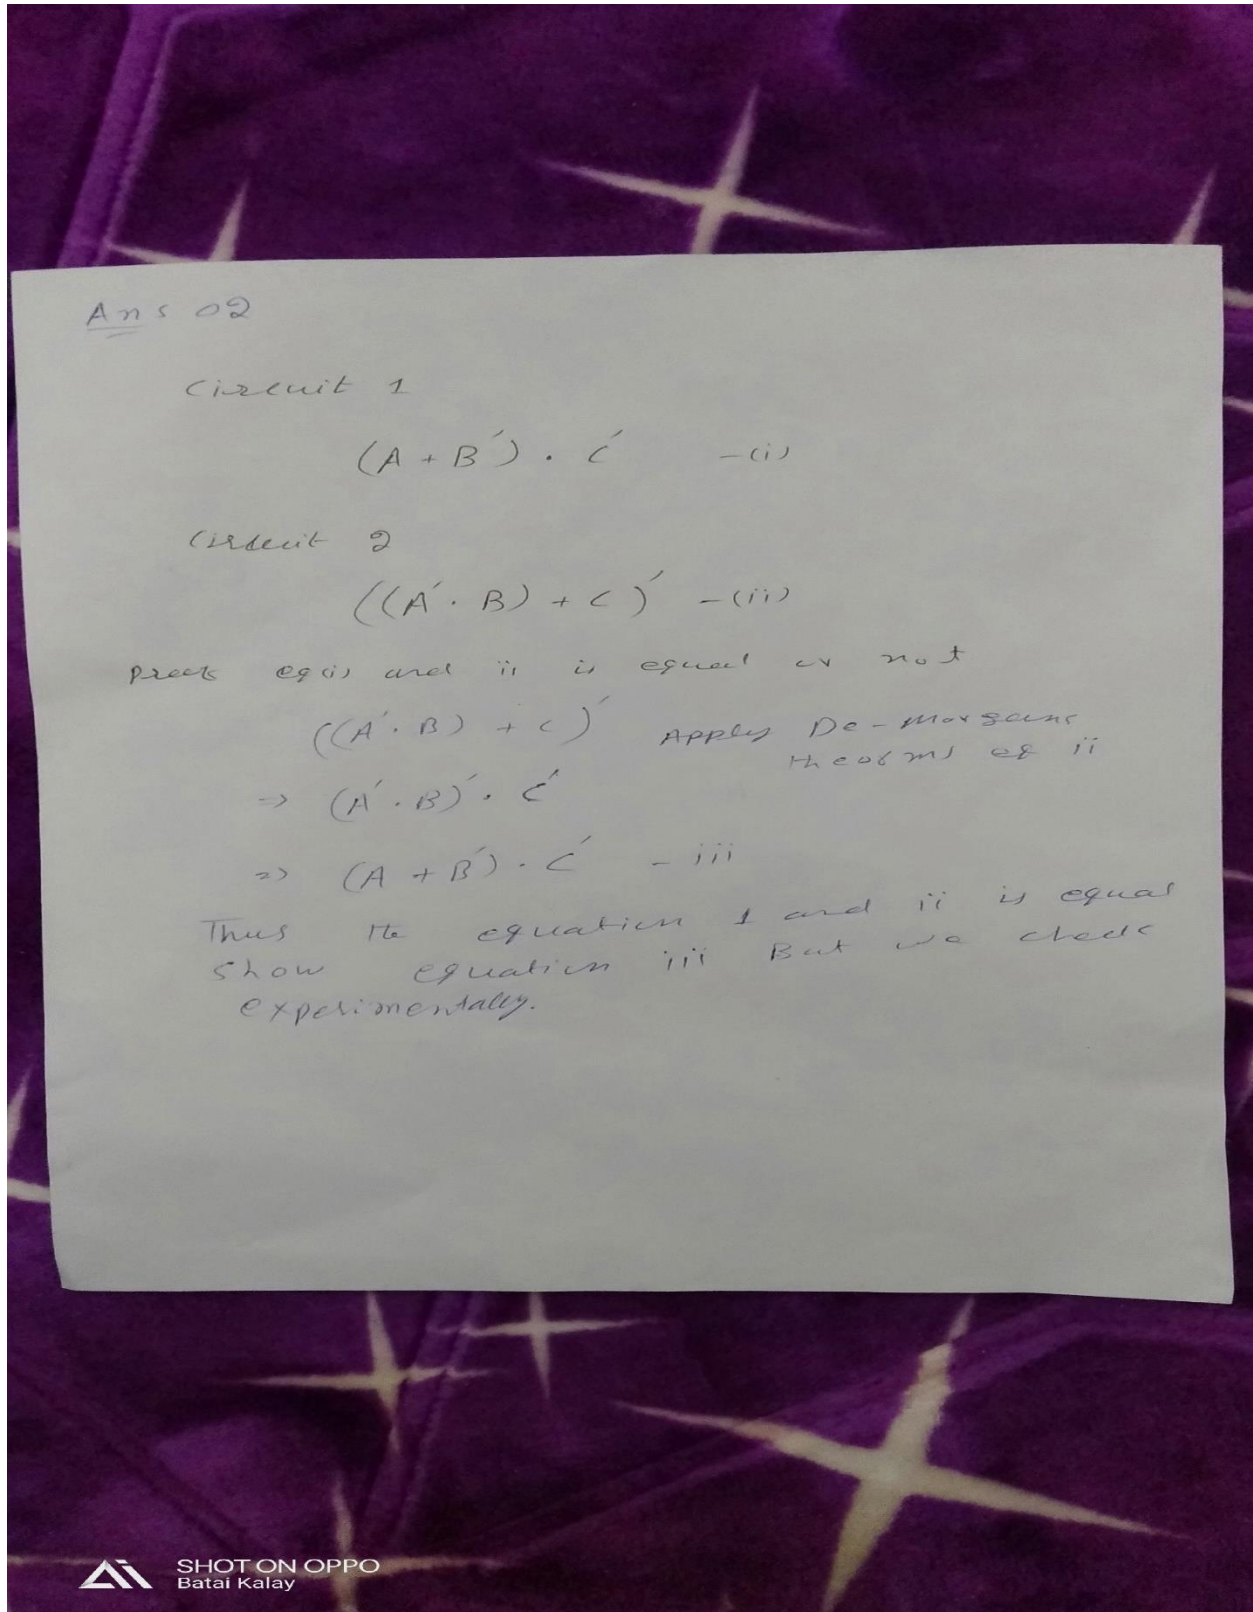 Ans 02
Circuit 1
(A + B') . C' - (i)
Circuit 2
((A' . B) + C)' - (ii)
Proof eq (i) and ii is equal or not
((A' . B) + C)' Apply De-Morgans
theorms eq ii
=> (A' . B)' . C'
=> (A + B') . C' - iii
Thus the equation 1 and ii is equal
show equation iii But we check
experimentaly.
SHOT ON OPPO
Batai Kalay